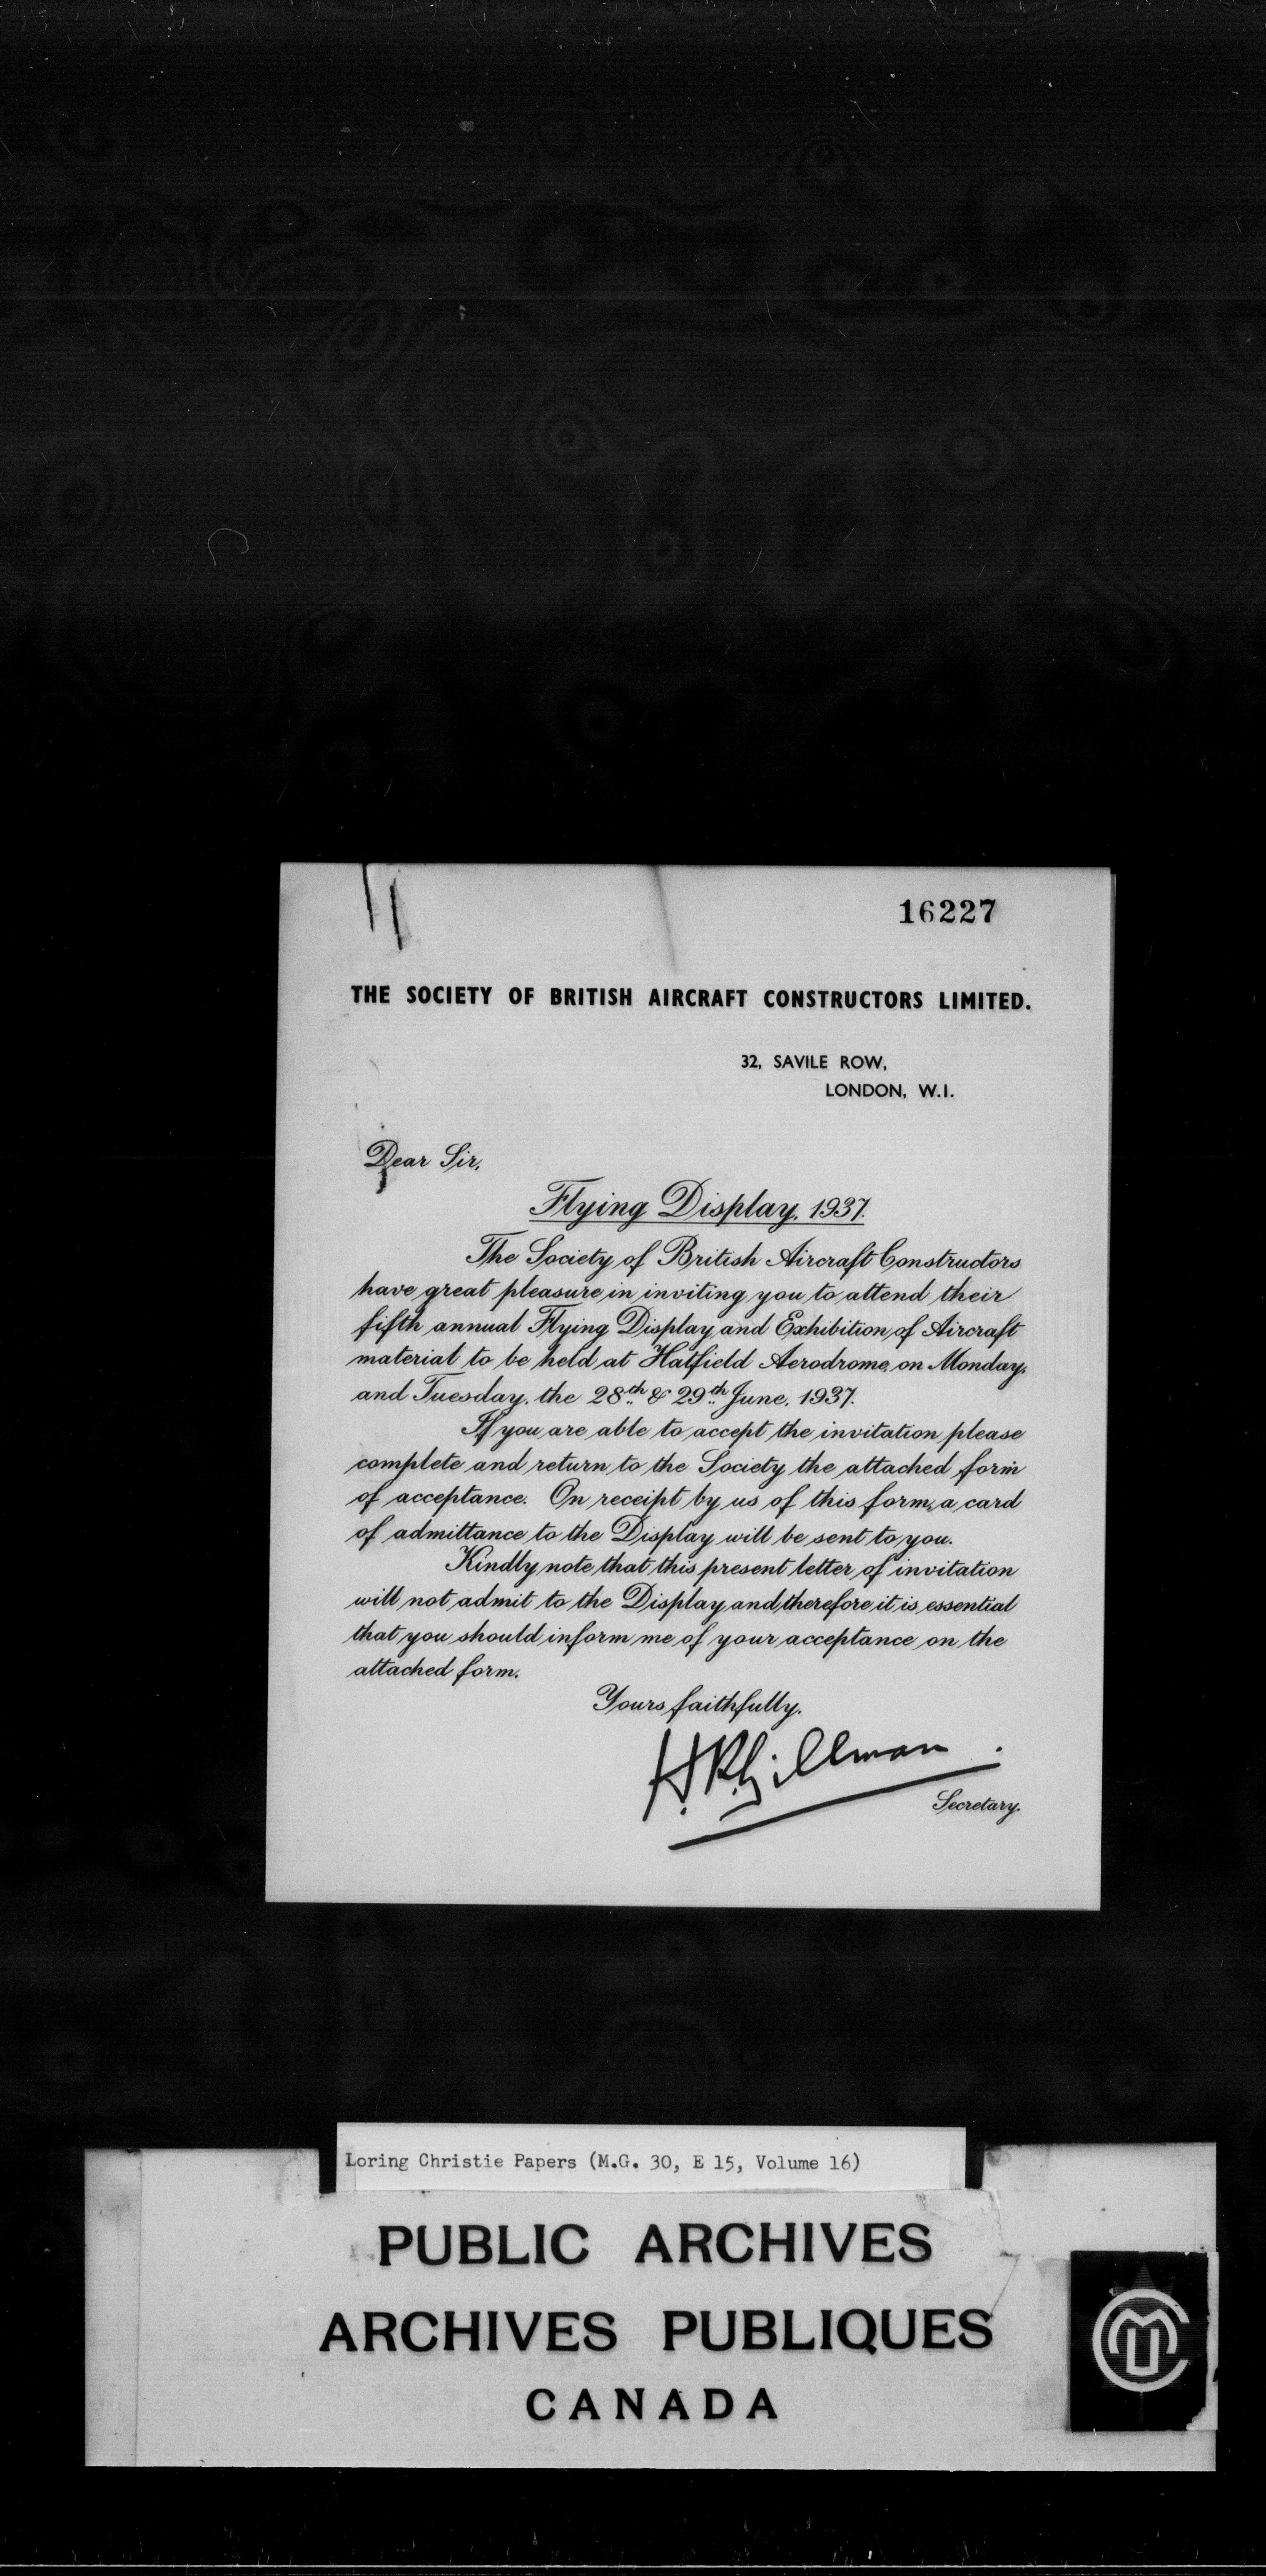 16227
THE SOCIETY OF BRITISH AIRCRAFT CONSTRUCTORS LIMITED.
32, SAVILE ROW,
LONDON, W.I.
Dear Sir,
Flying Display, 1937.
The Society of British Aircraft Constructors
have great pleasure in inviting you to attend their
fifth annual Flying Display and Exhibition of Aircraft
material to be held at Hatfield Aerodrome, on Monday,
and Tuesday, the 28th & 29th June, 1937.
If you are able to accept the invitation please
complete and return to the Society the attached form
of acceptance. On receipt by us of this form, a card
of admittance to the Display will be sent to you.
Kindly note that this present letter of invitation
will not admit to the Display and therefore it is essential
that you should inform me of your acceptance on the
attached form.
Yours faithfully,
H.R.Gillman.
Secretary.
Loring Christie Papers (M.G. 30, E 15, Volume 16)
PUBLIC ARCHIVES
ARCHIVES PUBLIQUES
CANADA